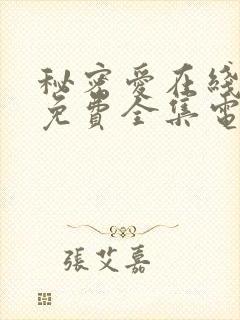 秘密愛在綫
免費全集電
張艾嘉